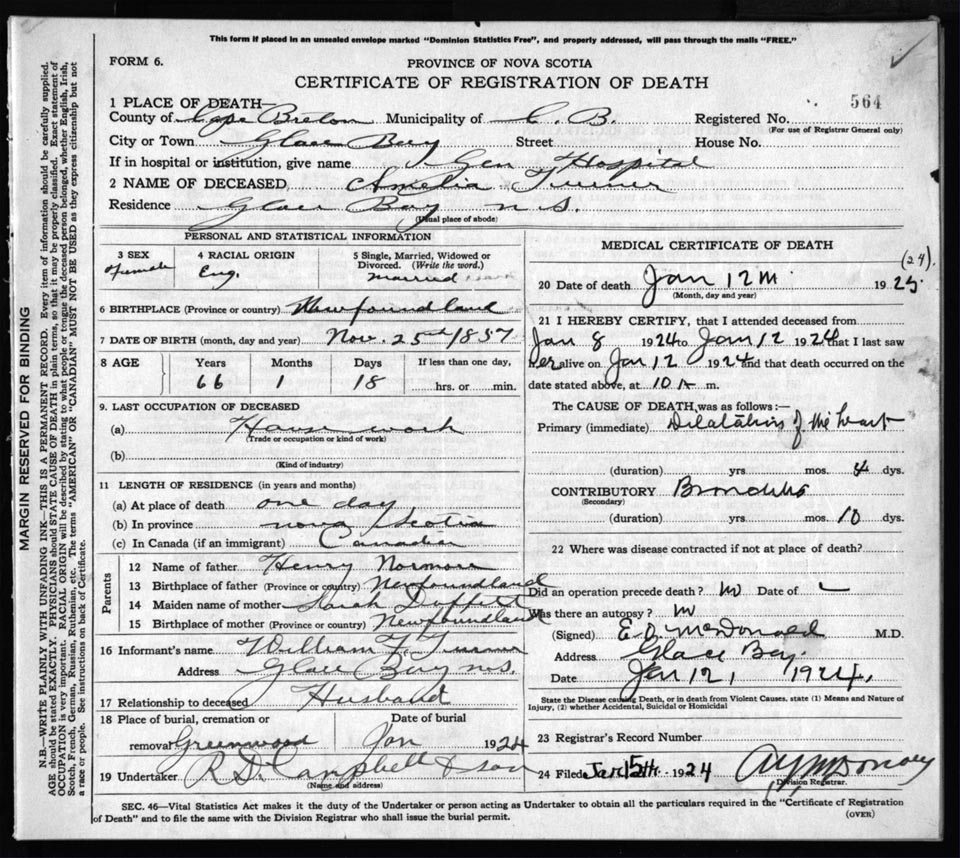 This form if placed in an unsealed envelope marked "Dominion Statistics Free", and properly addressed, will pass through the mails "FREE."
FORM 6.
PROVINCE OF NOVA SCOTIA
CERTIFICATE OF REGISTRATION OF DEATH
564
1 PLACE OF DEATH—
County of Cape Breton Municipality of C. B. Registered No.
(For use of Registrar General only)
City or Town Glace Bay Street House No.
If in hospital or institution, give name Gen Hospital
2 NAME OF DECEASED Amelia Turner
Residence Glace Bay N.S.
(Usual place of abode)
PERSONAL AND STATISTICAL INFORMATION
3 SEX Female
4 RACIAL ORIGIN Eng.
5 Single, Married, Widowed or Divorced. (Write the word.) married
6 BIRTHPLACE (Province or country) Newfoundland
7 DATE OF BIRTH (month, day and year) Nov. 25th 1857
8 AGE Years Months Days If less than one day,
66 1 18 hrs. or min.
9. LAST OCCUPATION OF DECEASED
(a) House work
(Trade or occupation or kind of work)
(b)
(Kind of industry)
11 LENGTH OF RESIDENCE (in years and months)
(a) At place of death one day
(b) In province nova Scotia
(c) In Canada (if an immigrant) Canadian
Parents
12 Name of father Henry Normore
13 Birthplace of father (Province or country) Newfoundland
14 Maiden name of mother Sarah
15 Birthplace of mother (Province or country) Newfoundland
16 Informant's name William Turner
Address Glace Bay N.S.
17 Relationship to deceased Husband
18 Place of burial, cremation or removal Greenwood
Date of burial Jan 1924
19 Undertaker R D. Campbell & son
(Name and address)
MEDICAL CERTIFICATE OF DEATH
(24).
20 Date of death Jan 12 1923.
(Month, day and year)
21 I HEREBY CERTIFY, that I attended deceased from
Jan 8 1924 to Jan 12 1924 that I last saw
her alive on Jan 12 1924 and that death occurred on the
date stated above, at 10 A m.
The CAUSE OF DEATH was as follows:—
Primary (immediate) Dilatation of the heart
(duration) yrs mos. 4 dys.
CONTRIBUTORY Bronchitis
(Secondary)
(duration) yrs mos. 10 dys.
22 Where was disease contracted if not at place of death?
Did an operation precede death? no Date of
Was there an autopsy? no
(Signed) McDonald M.D.
Address Glace Bay.
Date Jan 12, 1924.
State the Disease causing Death, or in death from Violent Causes. state (1) Means and Nature of Injury, (2) whether Accidental, Suicidal or Homicidal
23 Registrar's Record Number
24 Filed Jan 15th 1924
Division Registrar.
SEC. 46—Vital Statistics Act makes it the duty of the Undertaker or person acting as Undertaker to obtain all the particulars required in the "Certificate of Registration
of Death" and to file the same with the Division Registrar who shall issue the burial permit.
(OVER)
MARGIN RESERVED FOR BINDING
N.B.—WRITE PLAINLY WITH UNFADING INK—THIS IS A PERMANENT RECORD. Every item of information should be carefully supplied.
AGE should be stated EXACTLY. PHYSICIANS should STATE CAUSE OF DEATH in plain terms, so that it may be properly classified. Exact statement of
OCCUPATION is very important. RACIAL ORIGIN will be described by stating to what people or tongue the deceased person belonged, whether English, Irish,
Scotch, French, German, Russian, Ruthenian, etc. The terms "AMERICAN" or "CANADIAN" MUST NOT BE USED as they express citizenship but not
a race or people. See instructions on back of Certificate.